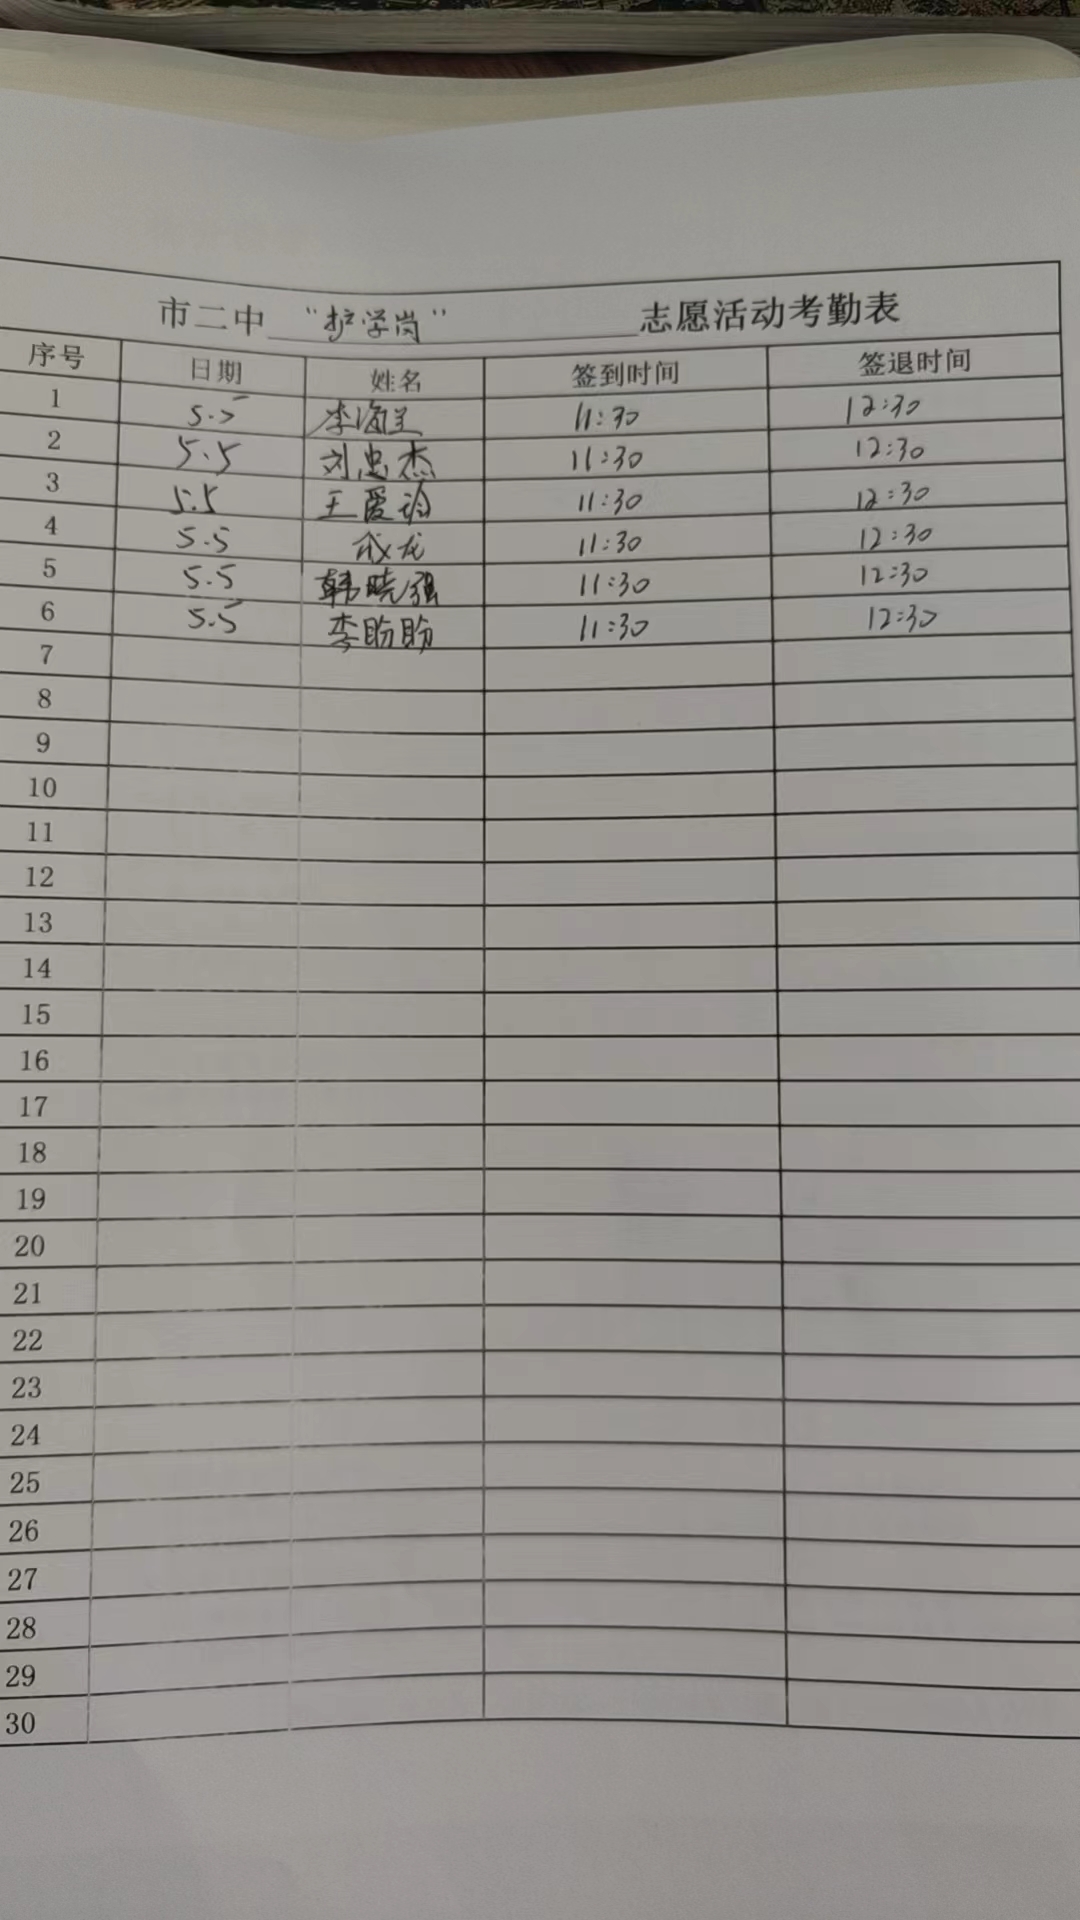 市二中 “护学岗” 志愿活动考勤表
序号 日期 姓名 签到时间 签退时间
1 5.5 李海兰 11:30 12:30
2 5.5 刘忠杰 11:30 12:30
3 5.5 王爱玲 11:30 12:30
4 5.5 成龙 11:30 12:30
5 5.5 韩晓强 11:30 12:30
6 5.5 李盼盼 11:30 12:30
7
8
9
10
11
12
13
14
15
16
17
18
19
20
21
22
23
24
25
26
27
28
29
30